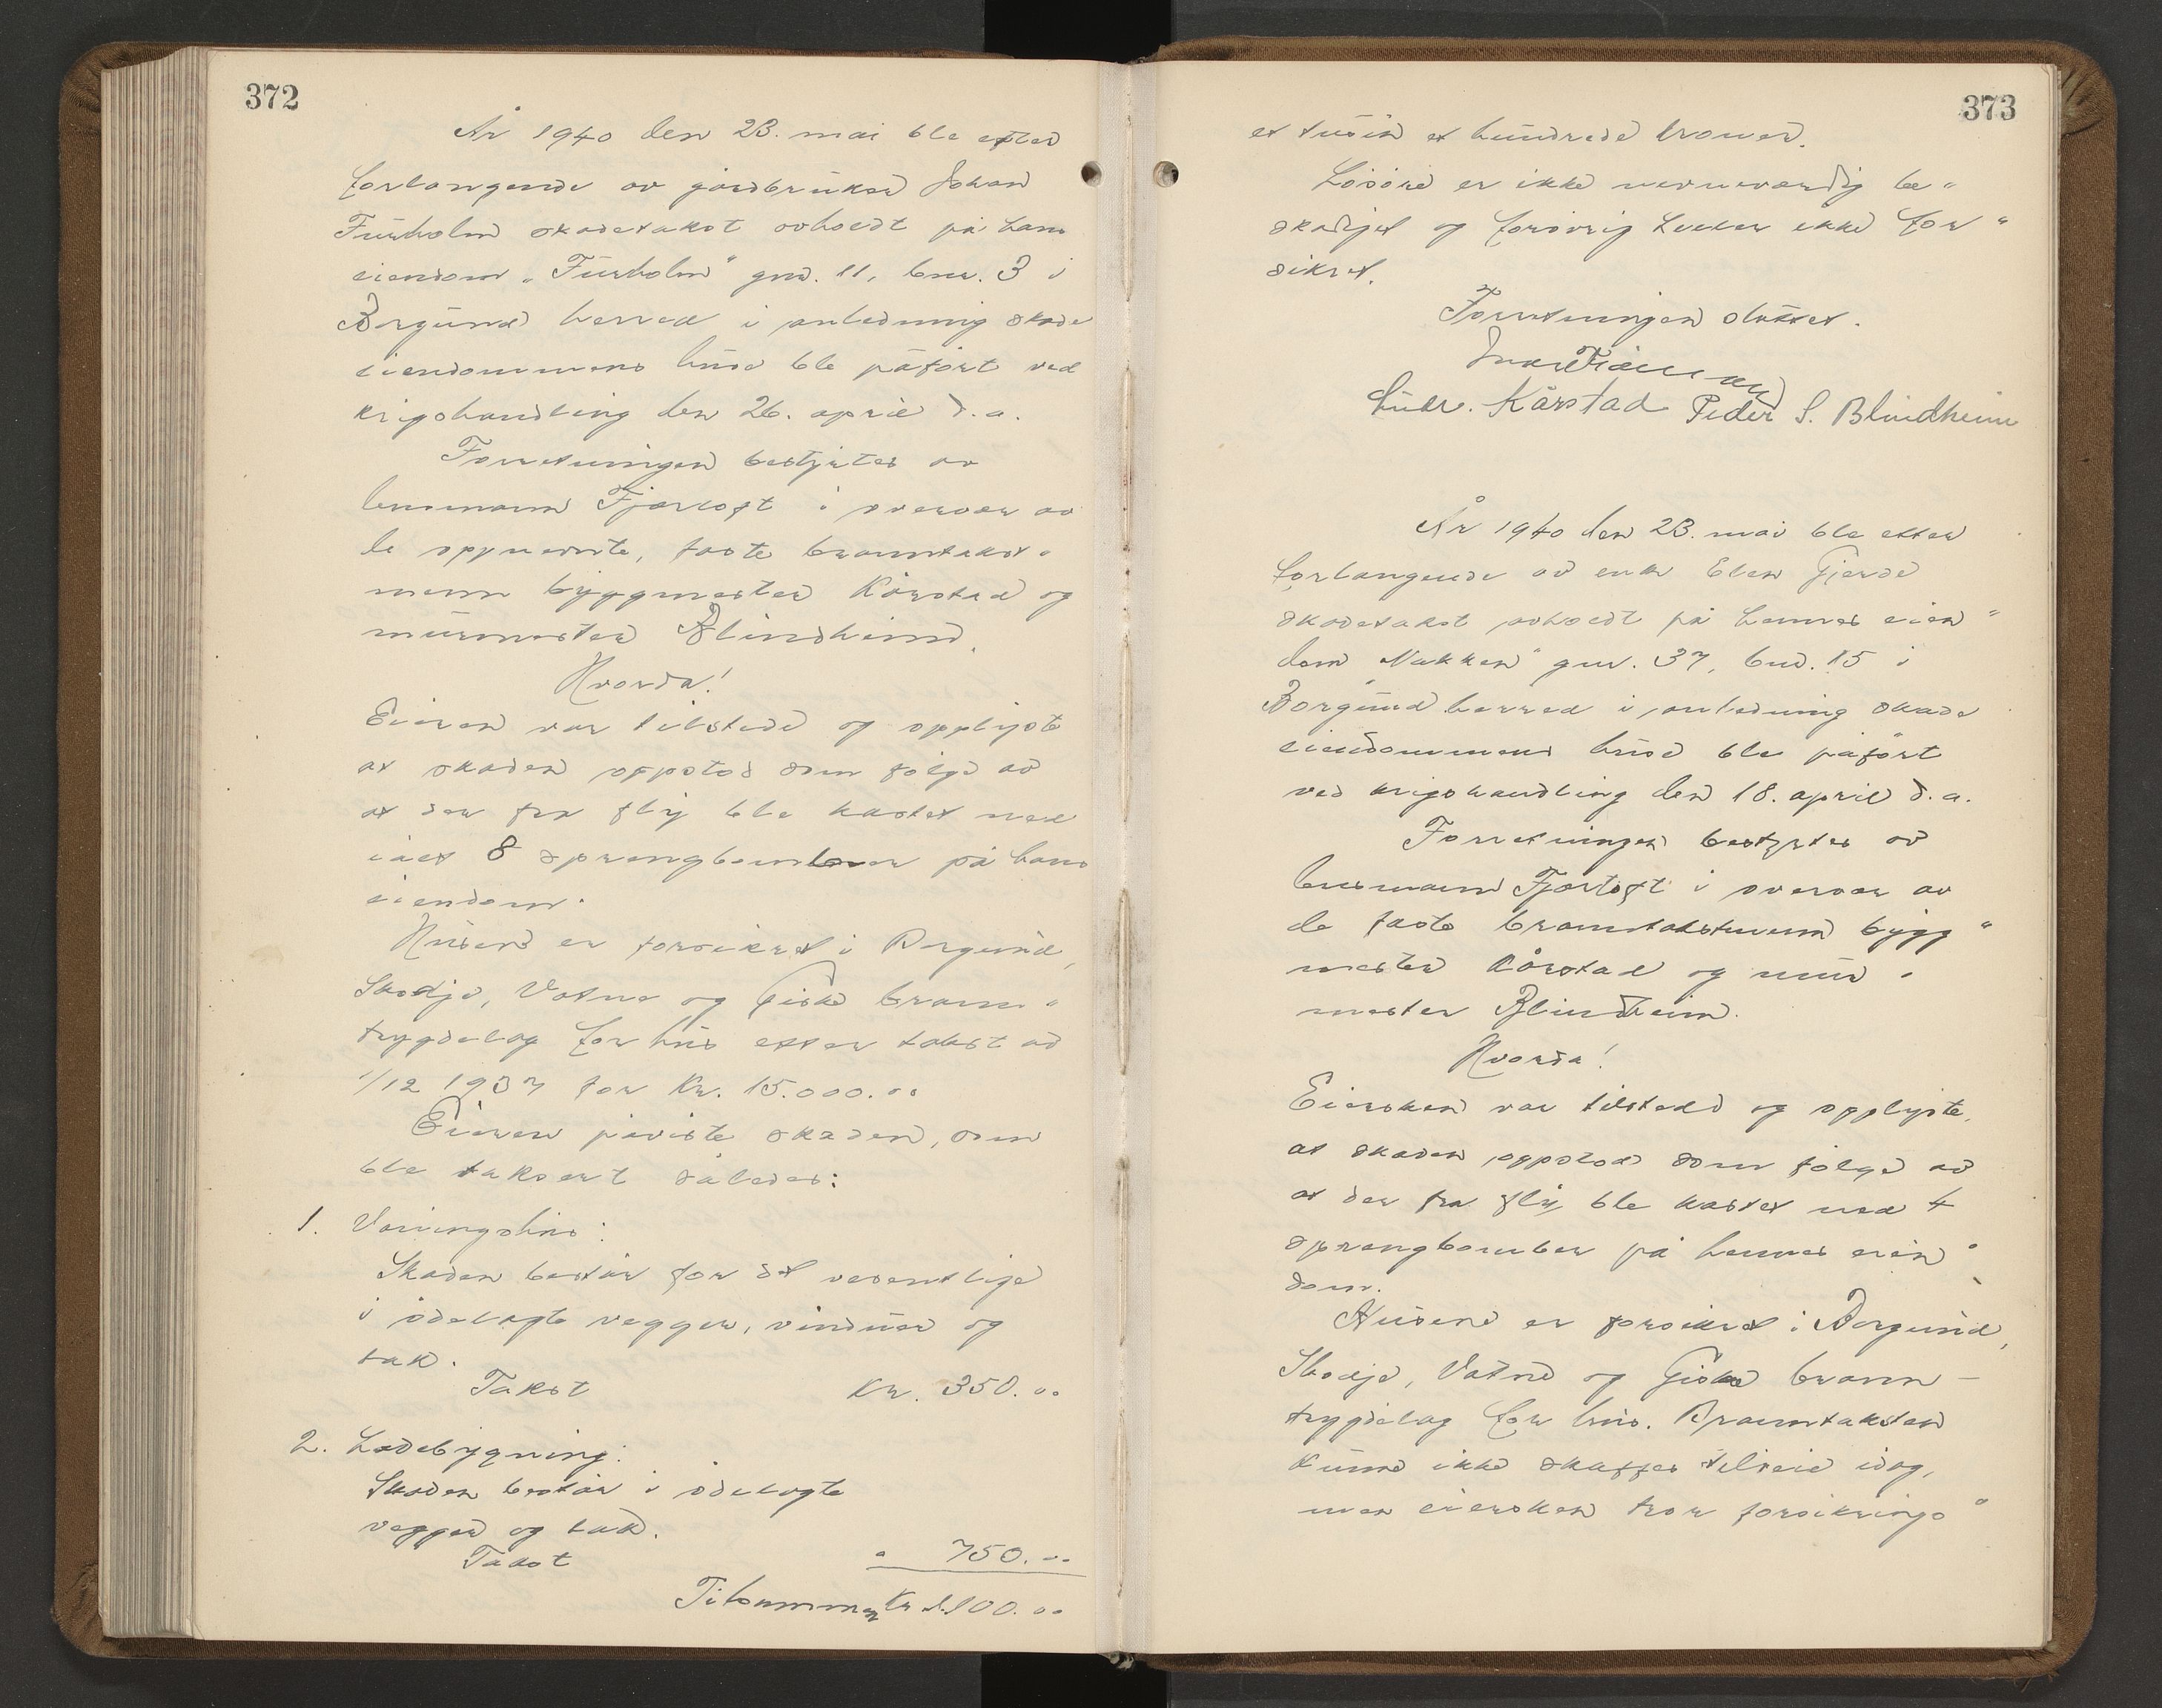 372
År 1940 den 23. mai ble efter
forlangende av gårdbruker Johan
Furholm skadetakst avholdt på hans
eiendom „Furholm" gnr. 11, bnr. 3 i
Borgund herred i anledning skade
eiendommens huse ble påført ved
krigshandling den 26. april d.a.
Forretningen bestyrtes av
lensmann Fjørtoft i overvær av
de opnevnte, faste branntakst-
menn byggmester Kårstad og
murmester Blindheim.
Hvorda!
Eieren var tilstede og opplyste
at skaden oppstod som følge av
at der fra fly ble kastet ned
ialt 8 sprengbomber på hans
eiendom.
Husene er forsikret i Borgund,
Skodje, Vatne og Giske brann-
trygdelag for hus efter takst av
1/12 1937 for Kr. 15.000.00
Eieren påviste skaden, som
ble taksert således:
1. Våningshus:
Skaden består for det vesentlige
i ødelagte vegger, vinduer og
tak.
Takst Kr. 350.00
2. Ladebygning:
Skaden består i ødelagte
vegger og tak.
Takst " 750.00
Tilsammen Kr 1.100.00
373
et tusin et hundrede kroner.
Løsøre er ikke nevneverdig be"
skadiget og forøvrig heller ikke for"
sikret.
Forretningen sluttet.
Ludv. Kårstad Peder S. Blindheim
År 1940 den 23. mai ble efter
forlangende av enke Elen Gjerde
skadetakst avholdt på hennes eien"
dom „Nakken" gnr. 37, bnr. 15 i
Borgund herred i anledning skade
eiendommens huse ble påført
ved krigshandling den 18. april d.a.
Forretningen bestyrtes av
lensmann Fjørtoft i overvær av
de faste branntakstmenn bygg"
mester Kårstad og mur-
mester Blindheim.
Hvorda!
Eiersken var tilstede og opplyste,
at skaden oppstod som følge av
at der fra fly ble kastet ned 4
sprengbomber på hennes eien"
dom.
Husene er forsikret i Borgund,
Skodje, Vatne og Giske brann-
trygdelag for hus. Branntaksten
kunne ikke skaffes tilveie idag,
men eiersken tror forsikrings"